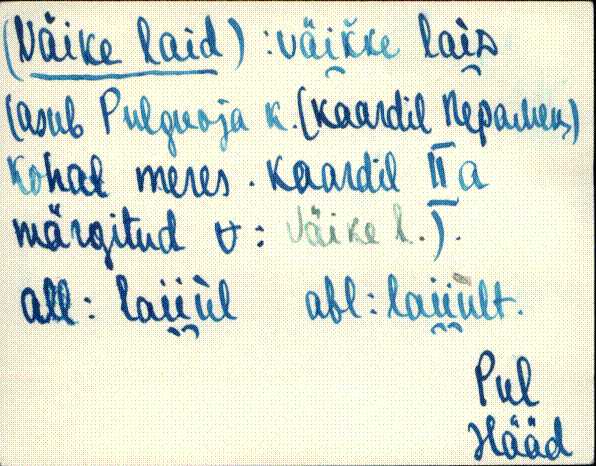 (Väike laid) : väikke lais
(asub Pulguoja k. (kaardil Перамец)
kohal meres. Kaardil IIa
märgitud ʊ: Väike l.).
all: laiiùl abl: laiiùlt.
Pul
Hääd